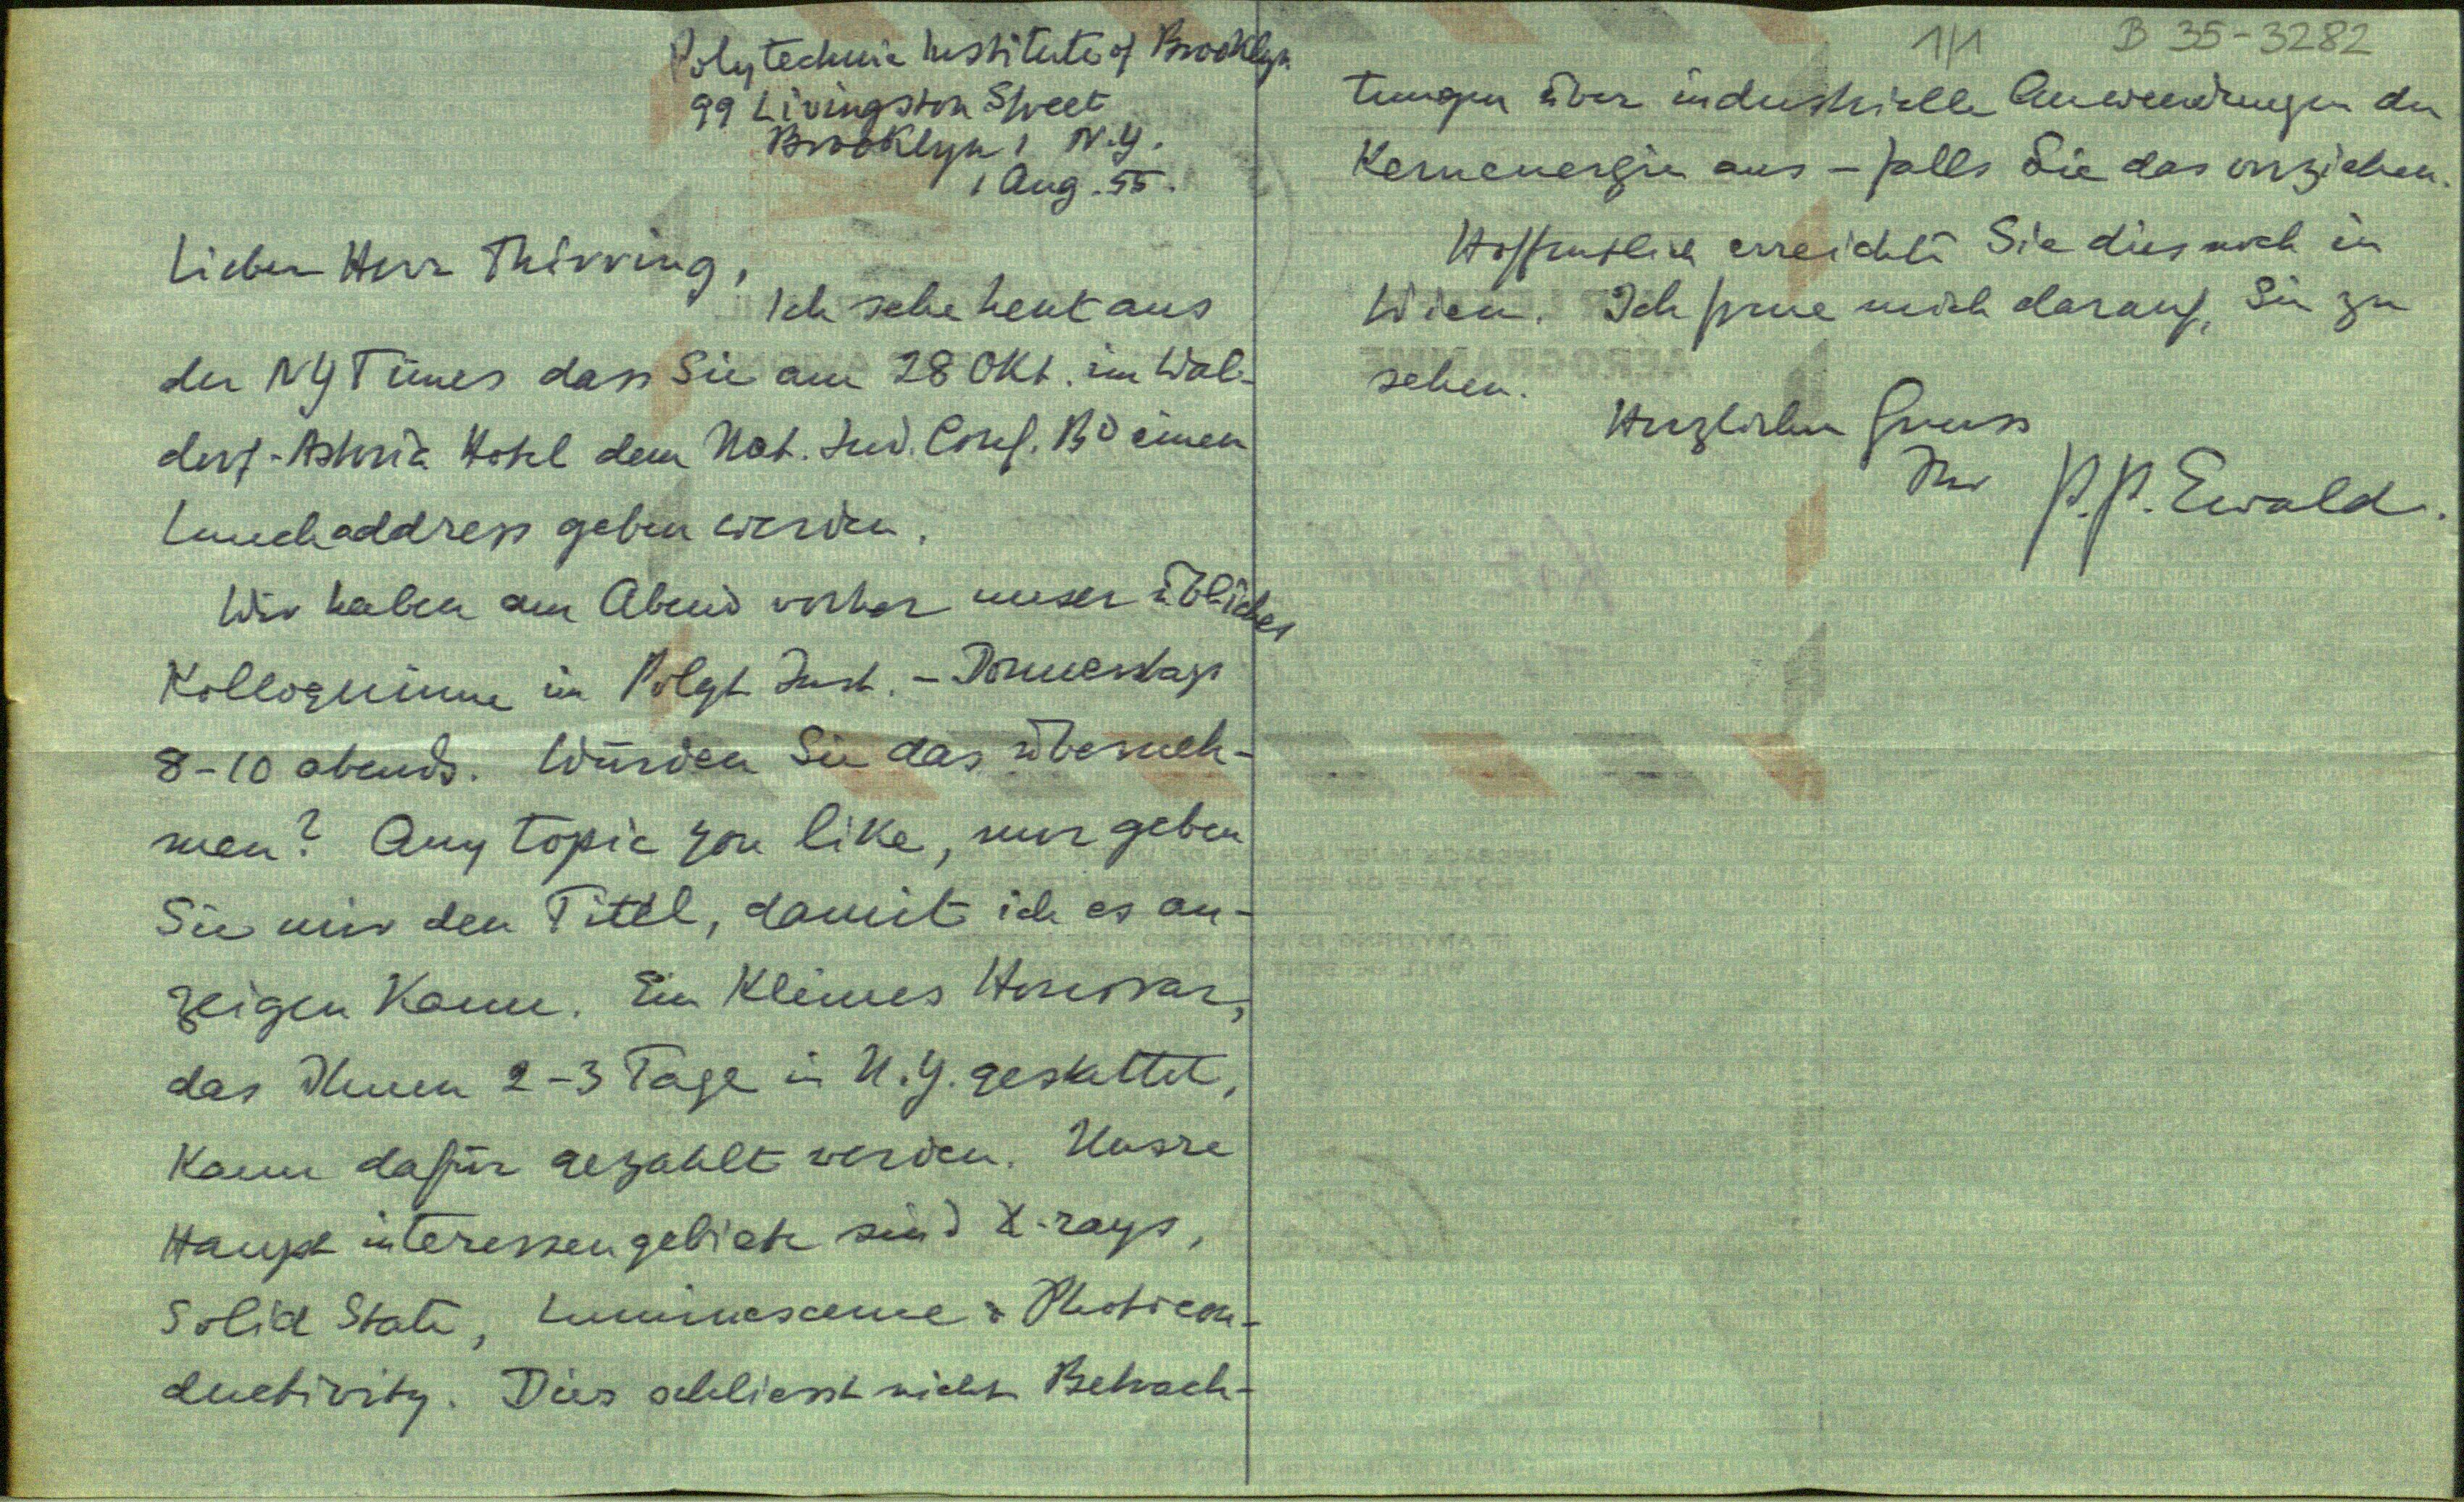 Polytechnic Institute of Brooklyn
99 Livingston Street
Brooklyn 1 N.Y.
1 Aug. 55.
Lieber Herr Thirring,
Ich sehe heut aus
der NYTimes dass Sie am 28 Okt. im Wal-
dorf-Astoria Hotel dem Nat. Ind. Conf. Bd einen
Lunchaddress geben werden.
Wir haben am Abend vorher unser übliches
Kolloquium im Polyt Inst. – Donnerstags
8–10 abends. Würden Sie das überneh-
men? Any topic you like, nur geben
Sie mir den Titel, damit ich es an-
zeigen kann. Ein kleines Honorar,
das Ihnen 2–3 Tage in N.Y. gestattet,
kann dafür gezahlt werden. Unsre
Hauptinteressengebiete sind X-rays,
Solid State, Luminescence & Photocon-
ductivity. Dies schliesst nicht Betrach-
1/1 B 35-3282
tungen über industrielle Anwendungen der
Kernenergie aus – falls Sie das vorziehen.
Hoffentlich erreicht Sie dies noch in
Wien. Ich freue mich darauf, Sie zu
sehen.
Herzlichen Gruss
Ihr P.P. Ewald.
AEROGRAMME